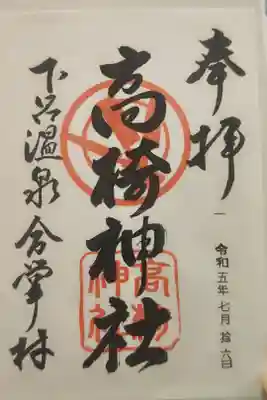 奉拝
令和五年七月拾六日
高椅神社
高椅神社
下呂温泉合掌村